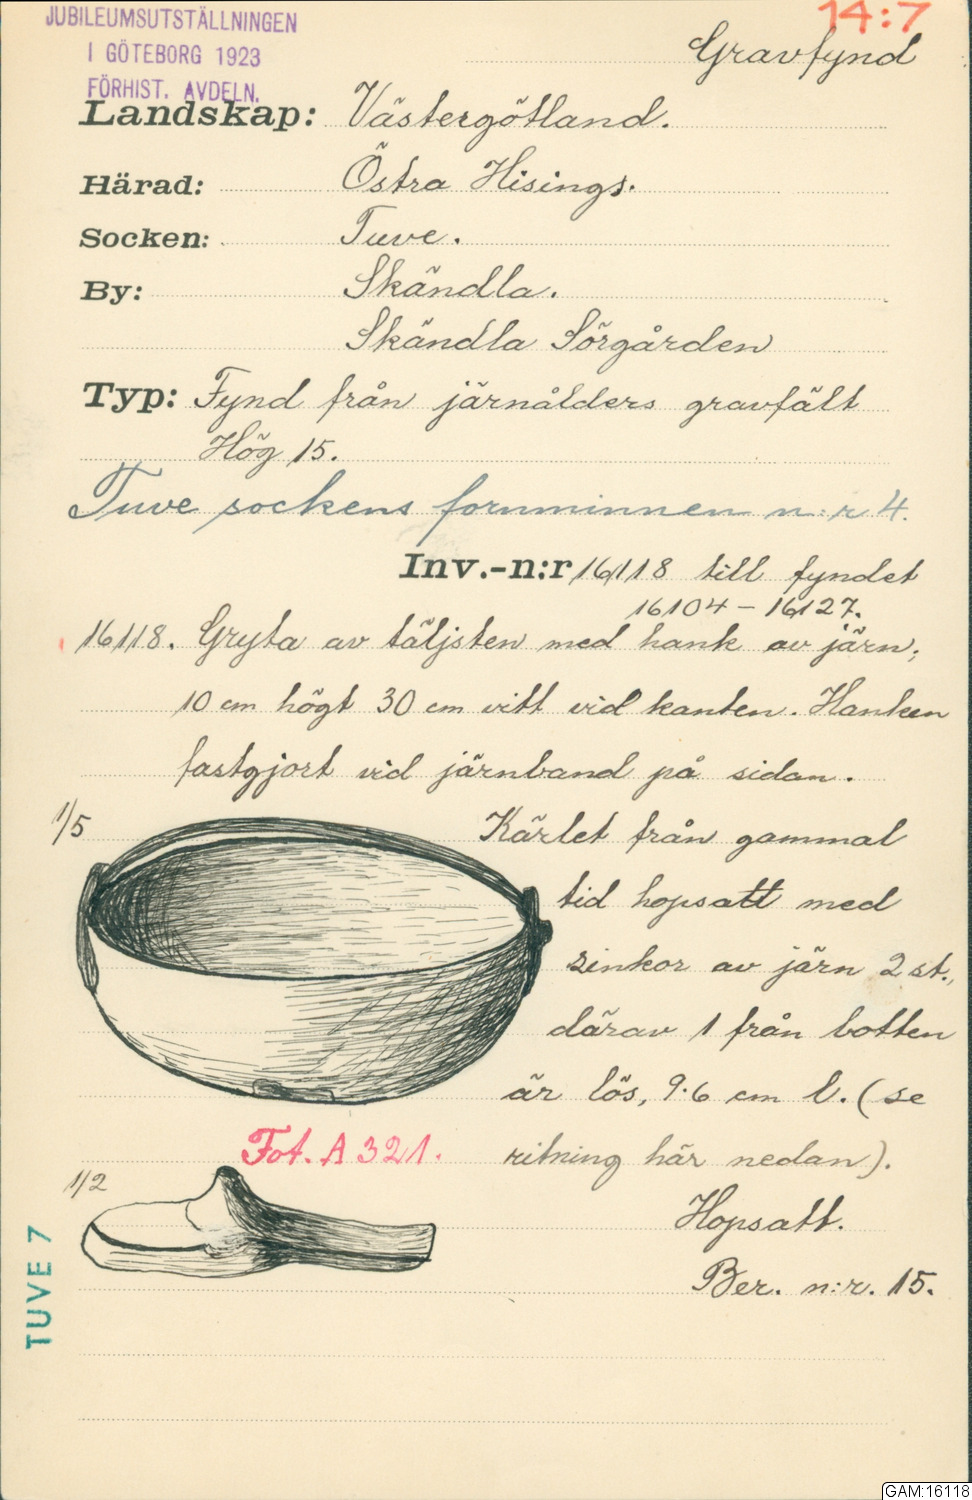 JUBILEUMSUTSTÄLLNINGEN
I GÖTEBORG 1923
FÖRHIST. AVDELN.
14:7
Gravfynd
Landskap: Västergötland.
Härad: Östra Hisings.
Socken: Tuve.
By: Skändla.
Skändla Sörgården
Typ: Fynd från järnålders gravfält
Hög 15.
Tuve sockens fornminnen n:r 4.
Inv.-n:r 16118 till fyndet
16104 – 16127.
16118. Gryta av täljsten med hank av järn;
10 cm högt 30 cm vitt vid kanten. Hanken
fastgjort vid järnband på sidan.
1/5
Kärlet från gammal
tid hopsatt med
sinkor av järn 2 st.,
därav 1 från botten
är lös, 9.6 cm l. (se
ritning här nedan).
Fot. A 321.
1/2
Hopsatt.
Ber. n:r. 15.
TUVE 7
GAM:16118